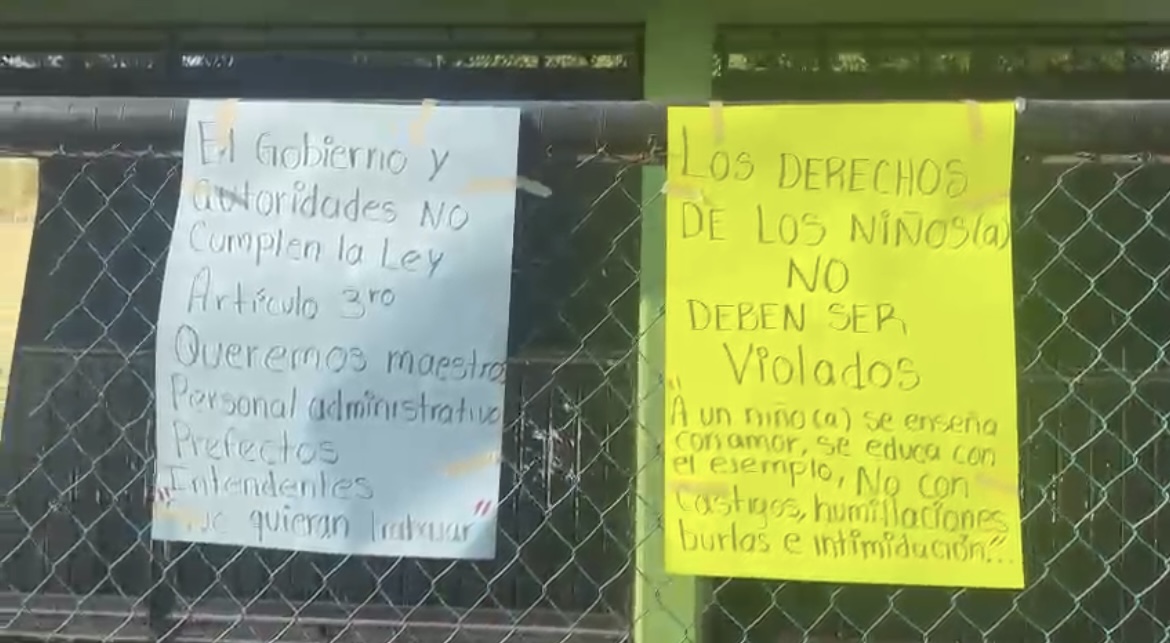 El Gobierno y
autoridades NO
Cumplen la Ley
Artículo 3ro
Queremos maestros
Personal administrativo
Prefectos
Intendentes
"que quieran trabajar"
LOS DERECHOS
DE LOS NIÑOS(a)
NO
DEBEN SER
Violados
"A un niño(a) se enseña
con amor, se educa con
el ejemplo, No con
Castigos, humillaciones
burlas e intimidación"...